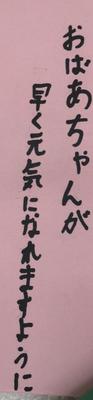 おばあちゃんが
早く元気になれますように